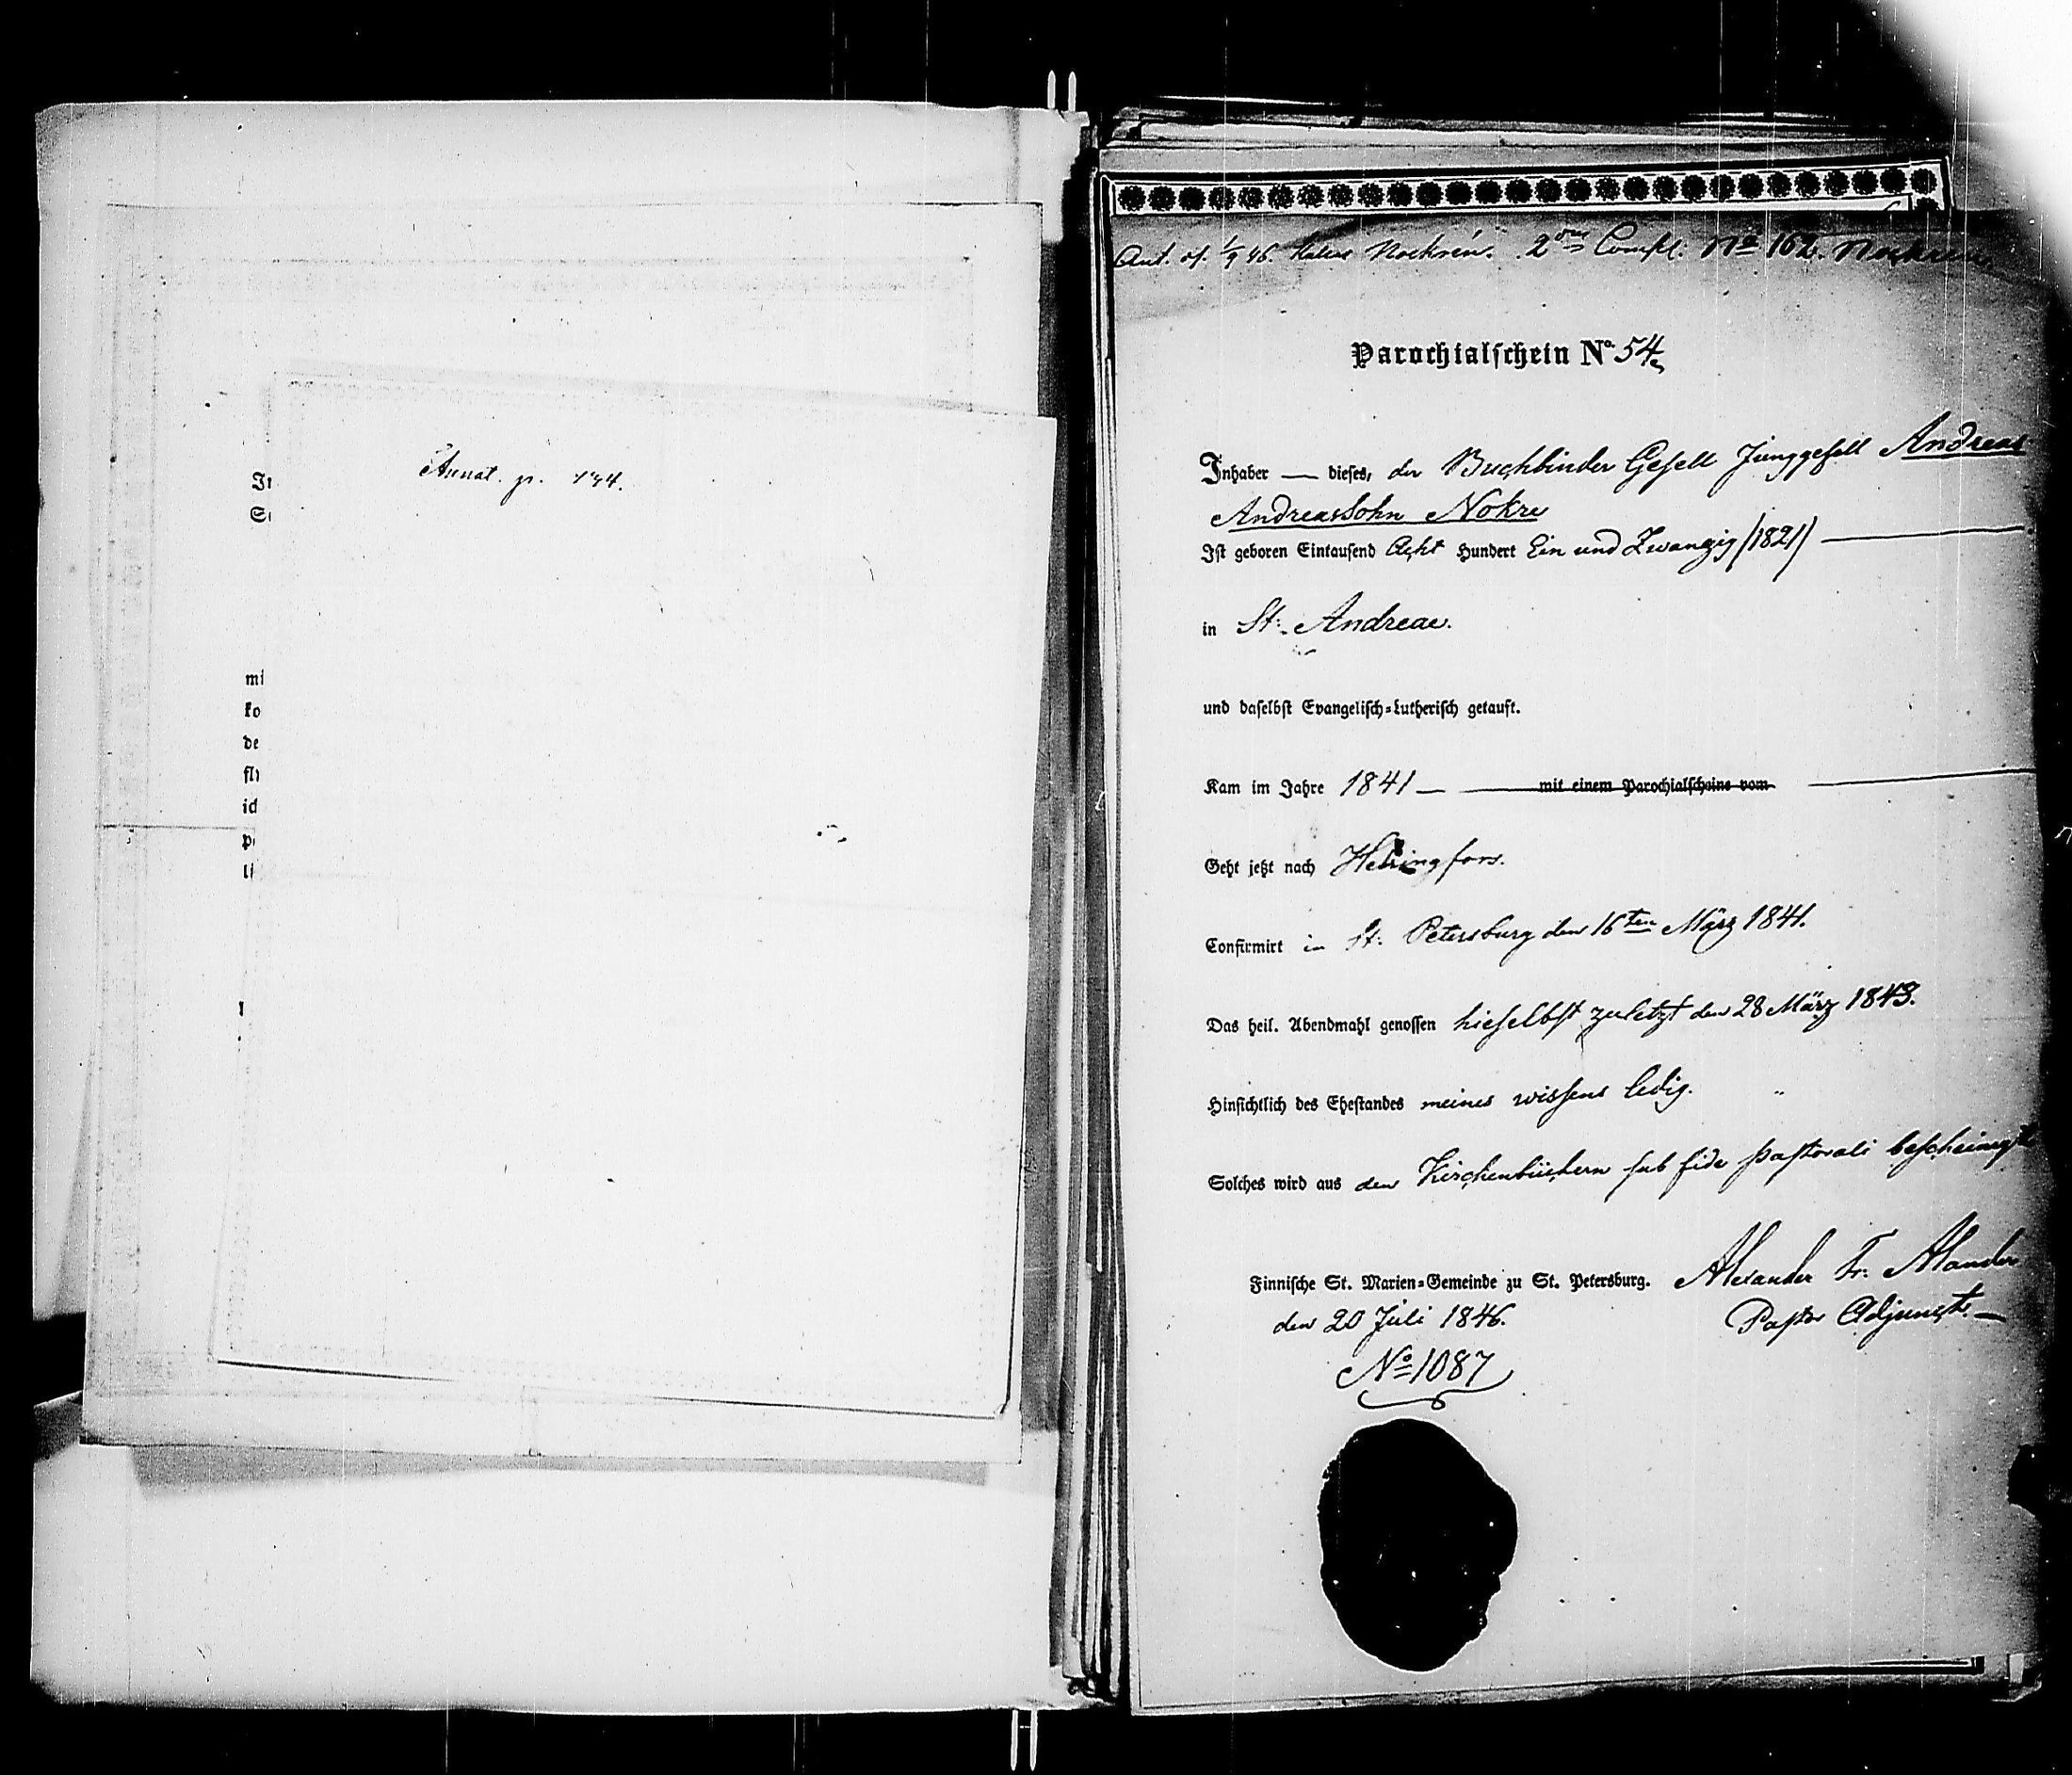 Annat. p. 194.
In
mi
ko
de
fl
ich
p
Ant. d. 1/9 46. 2 Compl. No 162.
Parochialschein No. 54
Inhaber — dieses, der Buchbinder Gesell Junggesell Andreas
Andreassohn Nokre
Ist geboren Eintausend Acht Hundert Ein und Zwanzig /1821/
in St. Andreae.
und daselbst Evangelisch-Lutherisch getauft.
Kam im Jahre 1841 — mit einem Parochialscheine vom
Geht jetzt nach Helsingfors.
Confirmirt in St. Petersburg den 16ten März 1841.
Das heil. Abendmahl genossen hieselbst zuletzt den 28 März 1843.
Hinsichtlich des Ehestandes meines wissens ledig.
Solches wird aus den Kirchenbüchern sub fide pastorali bescheinigt
Finnische St. Marien-Gemeinde zu St. Petersburg. Alexander Fr. Alander
den 20 Juli 1846. Pastor Adjunct. —
No 1087